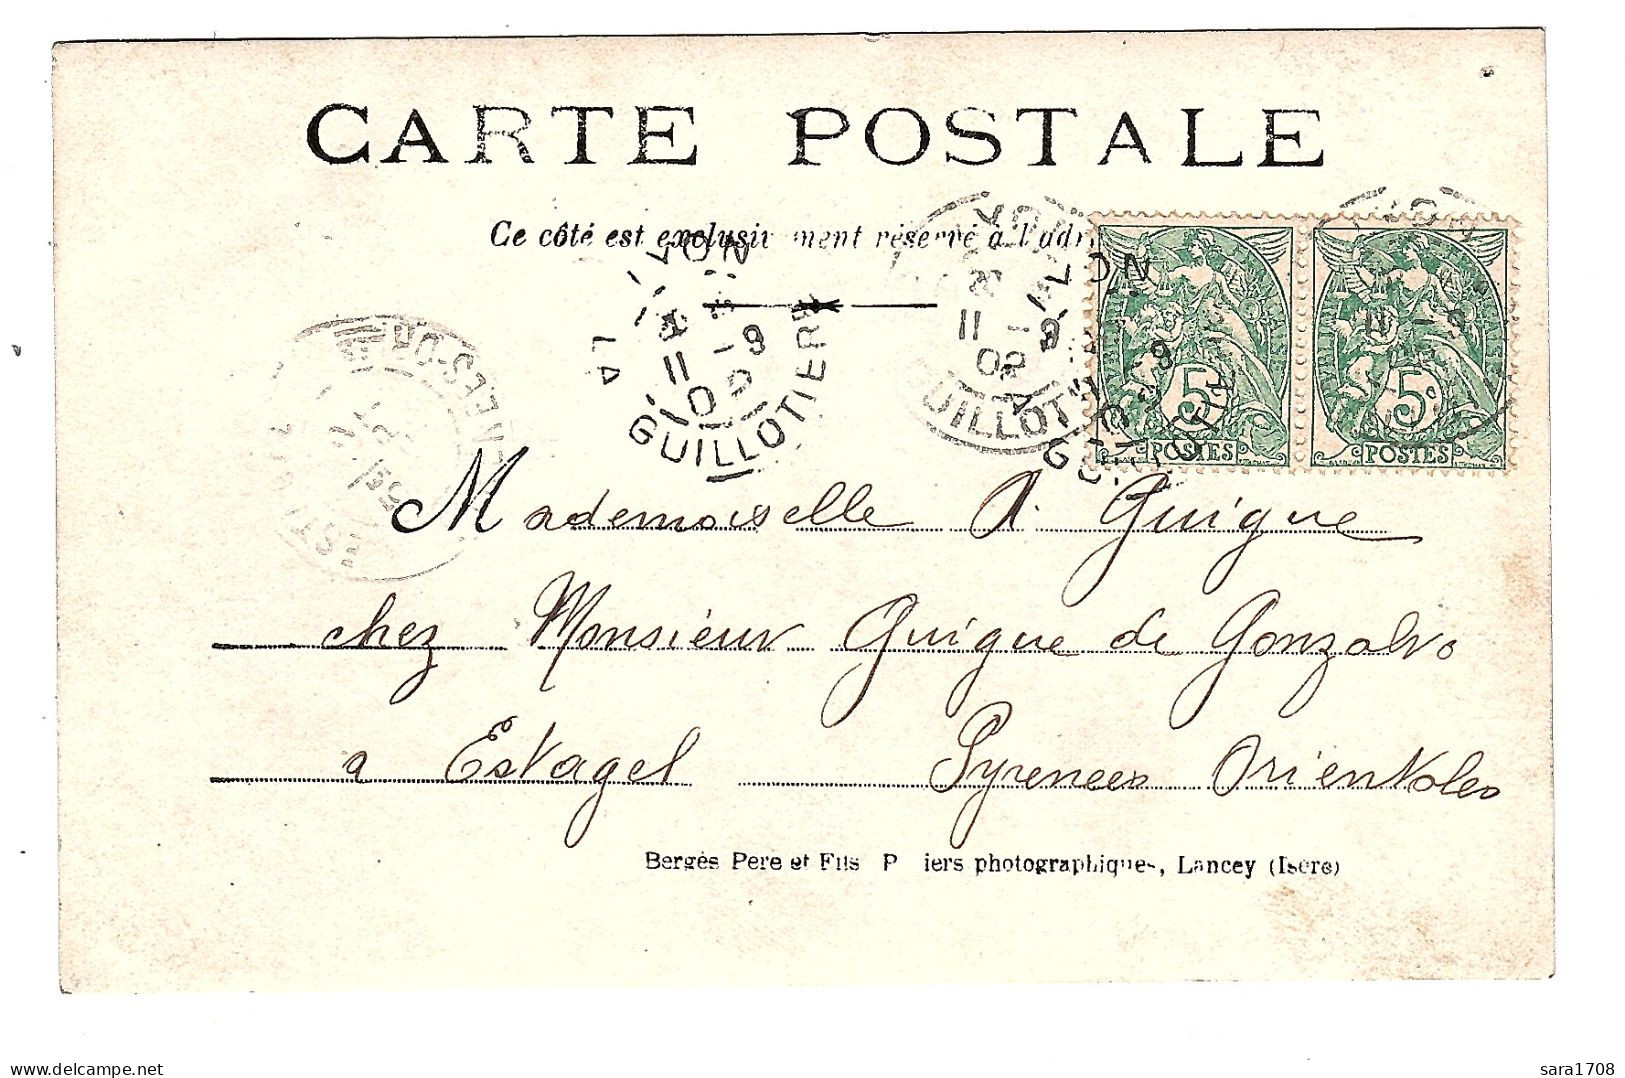 CARTE POSTALE
Ce côté est exclusivement réservé à l'adr
LYON
LA GUILLOTIERE
11 - 9
02
5c 5c
POSTES POSTES
Mademoiselle A. Guigue
chez Monsieur Guigue de Gonzalvo
a Estagel Pyrenees Orientales
Bergès Pere et Fils P iers photographiques, Lancey (Isere)
sara1708